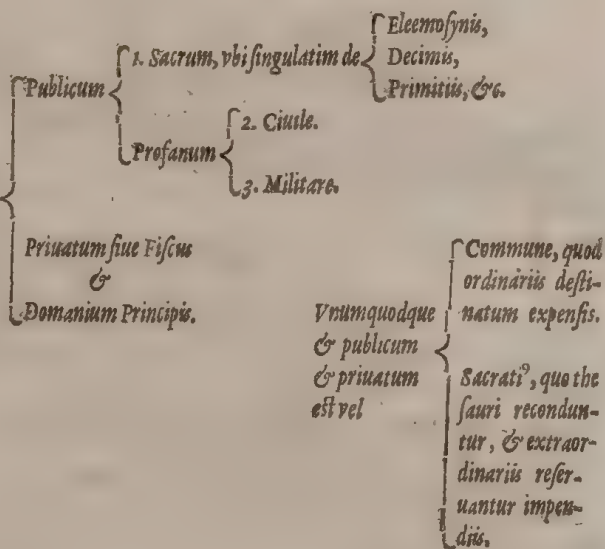 Publicum
1. Sacrum, vbi ſingulatim de
Eleemoſynis,
Decimis,
Primitiis, &c.
Profanum
2. Ciuile.
3. Militare.
Priuatum ſiue Fiſcus
&
Domanium Principis.
Vnumquodque
& publicum
& priuatum
eſt vel
Commune, quod
ordinariis deſti-
natum expenſis.
Sacratiꝰ, quo the
ſauri recondun-
tur, & extraor-
dinariis reſer-
uantur impen-
diis.